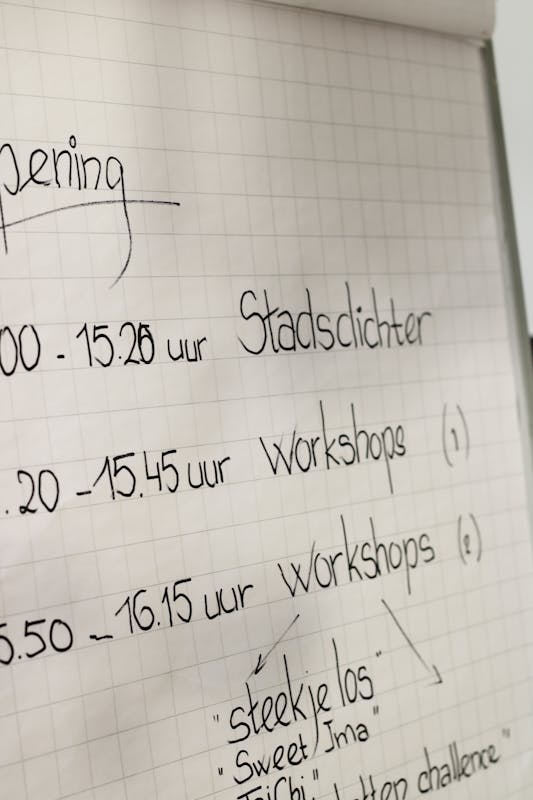 pening
00 - 15.20 uur Stadsdichter
.20 - 15.45 uur Workshops (1)
5.50 - 16.15 uur Workshops (2)
"steekje los"
"Sweet Ima"
"TaiChi" challence"